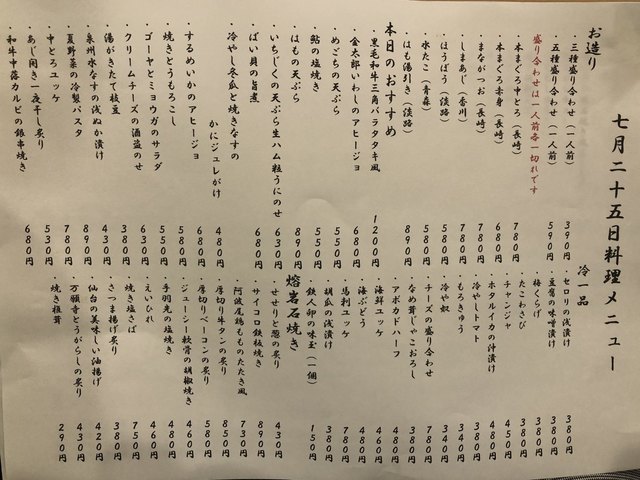 七月二十五日料理メニュー
お造り
・三種盛り合わせ（一人前） 390円
・五種盛り合わせ（一人前） 590円
盛り合わせは一人前各一切れです
・本まぐろ中とろ（長崎） 780円
・本まぐろ赤身（長崎） 680円
・まながつお（長崎） 780円
・しまあじ（香川） 780円
・ほうぼう（淡路） 680円
・水たこ（青森） 550円
・はも湯引き（淡路） 890円
本日のおすすめ
・黒毛和牛三角バラタタキ風 1200円
・金太郎いわしのアヒージョ 680円
・めごちの天ぷら 550円
・鮎の塩焼き 550円
・はもの天ぷら 890円
・いちじくの天ぷら生ハム粒うにのせ 630円
・ばい貝の旨煮 680円
・冷やし冬瓜と焼きなすの
かにジュレがけ 480円
・するめいかのアヒージョ 680円
・焼きとうもろこし 580円
・ゴーヤとミョウガのサラダ 550円
・クリームチーズの酒盗のせ 630円
・湯がきたて枝豆 380円
・泉州水なすの浅ぬか漬け 430円
・夏野菜の冷製パスタ 890円
・中とろユッケ 780円
・あじ開き一夜干し炙り 530円
・和牛中落カルビの銀串焼き 680円
冷一品
・セロリの浅漬け 380円
・豆腐の味噌漬け 380円
・梅くらげ 380円
・たこわさび 380円
・チャンジャ 450円
・ホタルイカの沖漬け 480円
・冷やしトマト 340円
・もろきゅう 340円
・冷や奴 340円
・チーズの盛り合わせ 780円
・なめ茸じゃこおろし 380円
・アボカドハーフ 380円
・海鮮ユッケ 480円
・海ぶどう 480円
・馬刺ユッケ 780円
・胡瓜の浅漬け 380円
・鉄人卵の味玉（一個） 150円
熔岩石焼き
・せせりと葱の炙り 430円
・サイコロ鉄板焼き 890円
・阿波尾鶏もものたたき風 730円
・厚切り牛タンの炙り 850円
・厚切りベーコンの炙り 580円
・ジューシー軟骨の胡椒焼き 480円
・手羽先の塩焼き 460円
・えいひれ 460円
・焼き塩さば 750円
・さつま揚げ炙り 380円
・仙台の美味しい油揚げ 420円
・万願寺とうがらしの炙り 430円
・焼き椎茸 290円